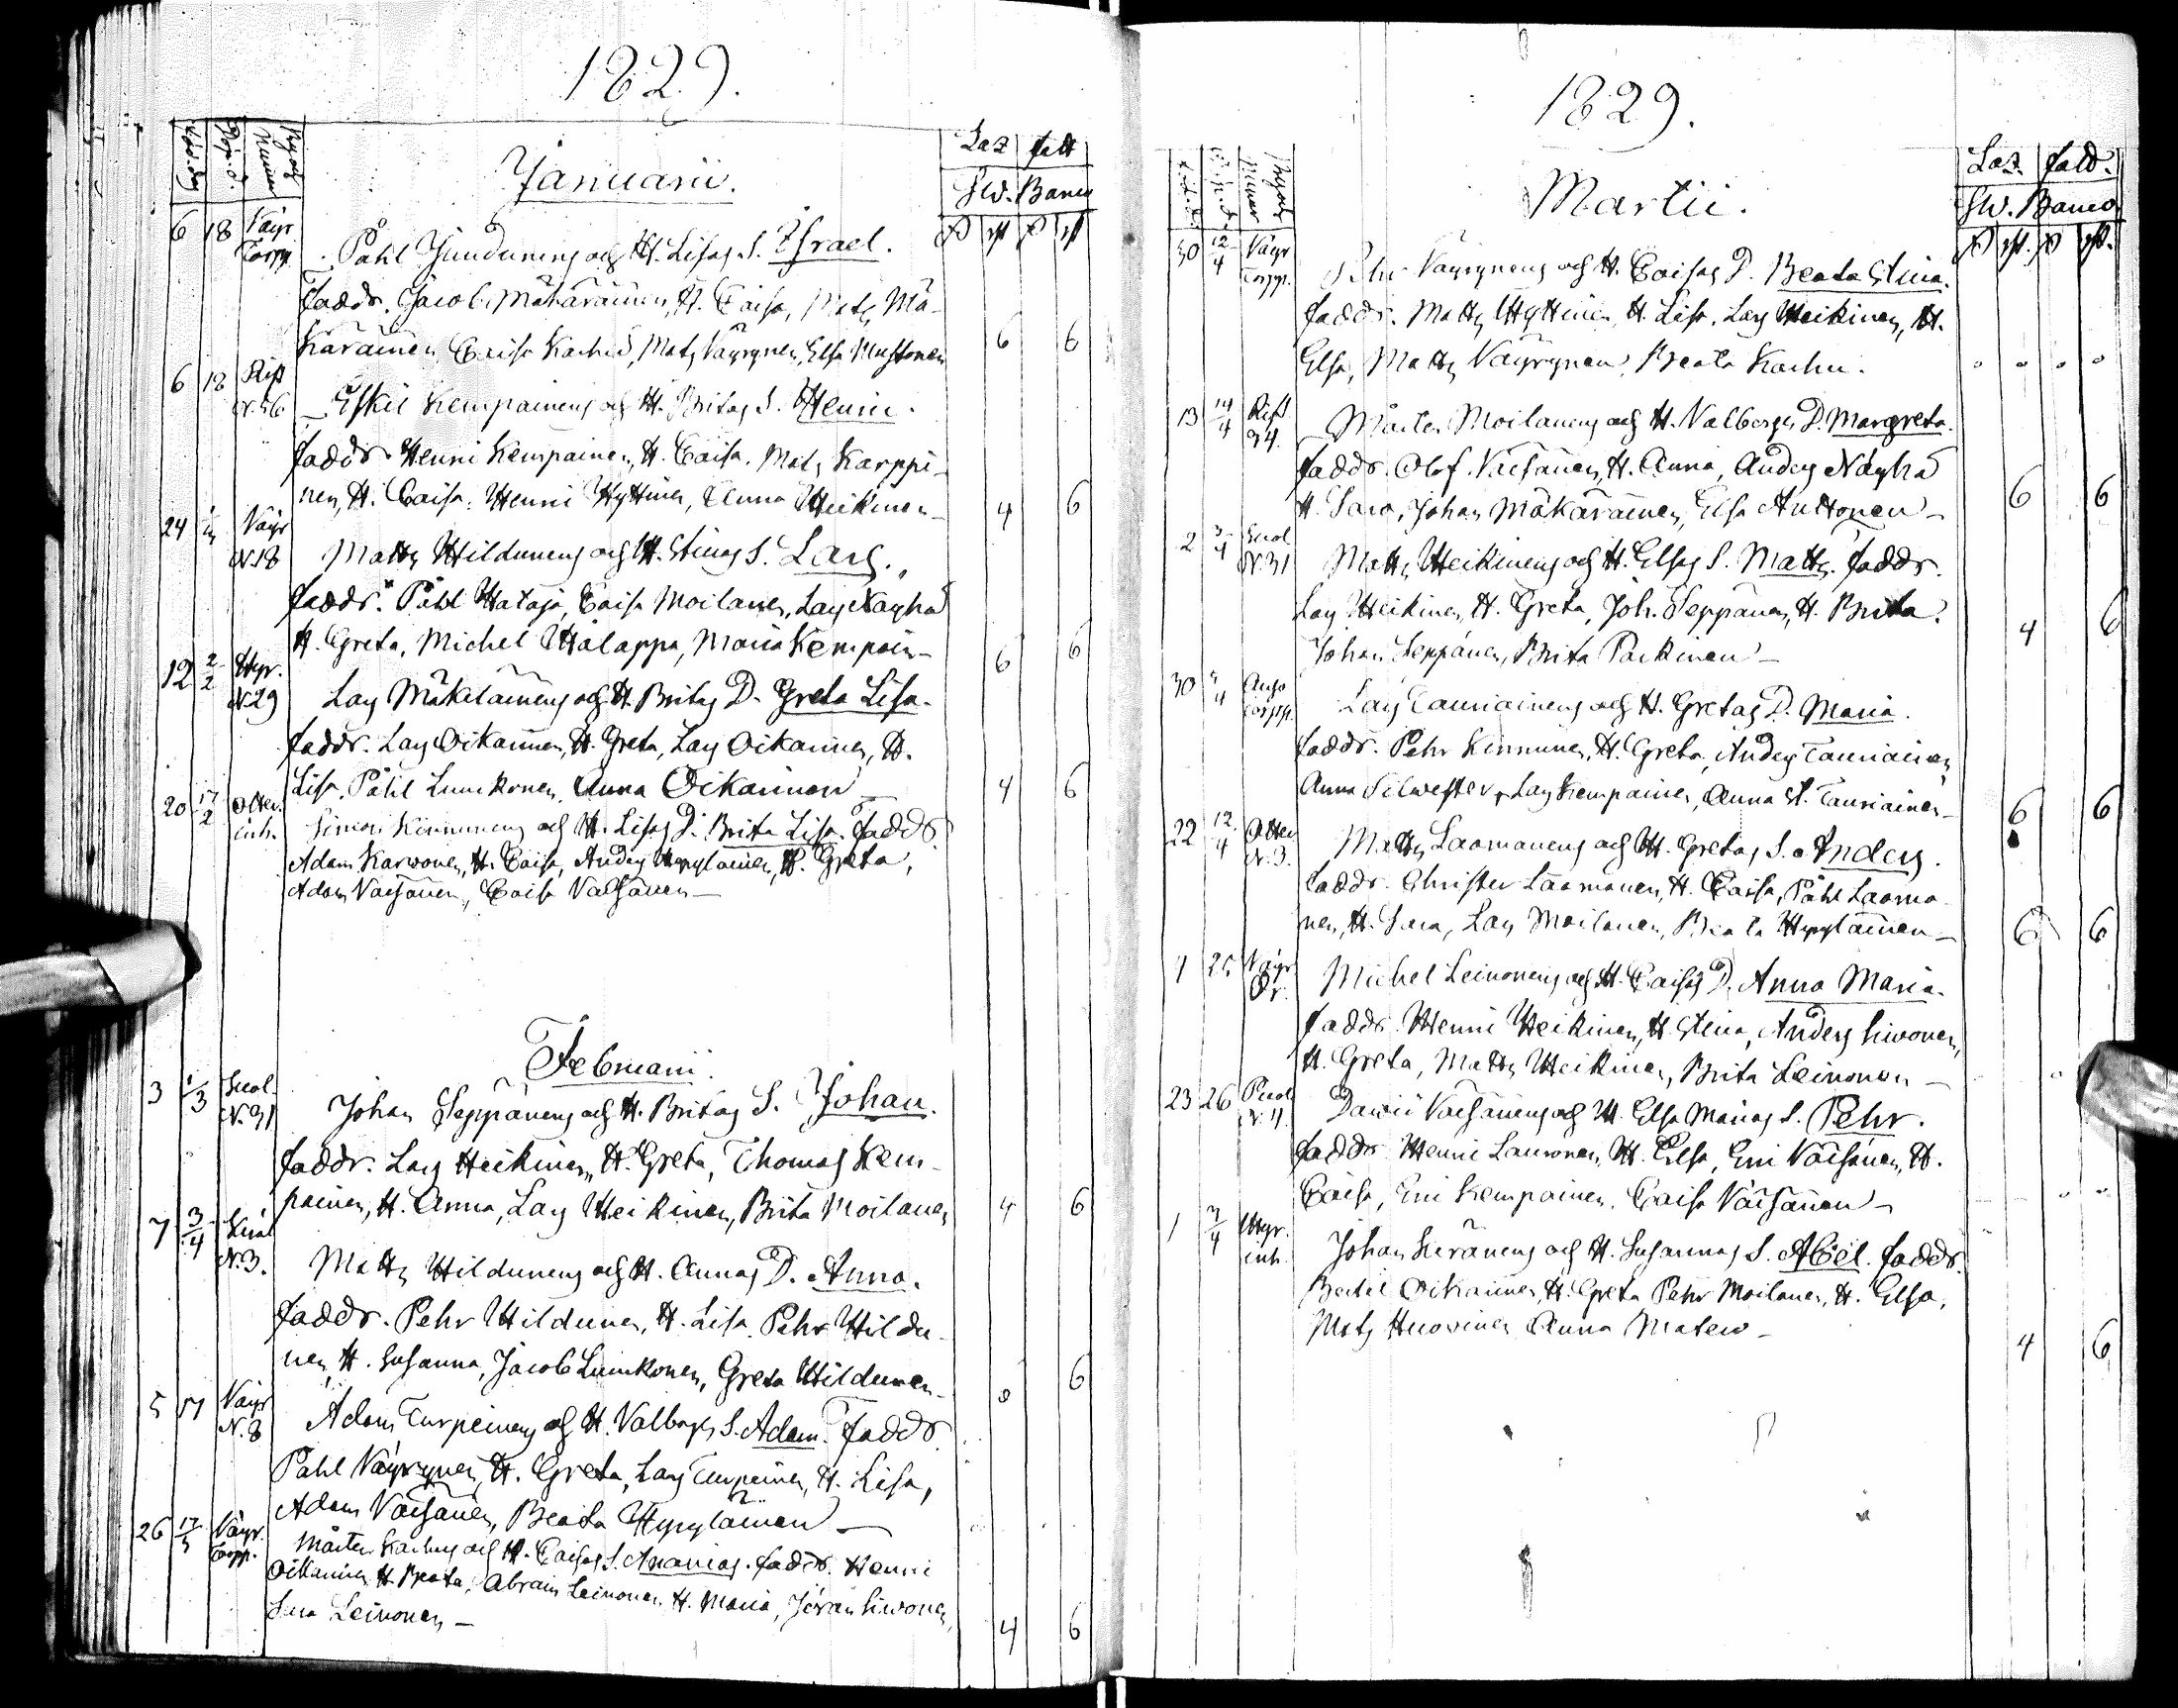 1829.
Januarii.
Laz fatt
Sw. Banco
6 18 Väyr Torpp. Påhl Jundunens och H. Lisas S. Israel.
Faddr. Jacob Mäkäräinen, H. Caisa, Mats Mä-
käräinen, Caisa Kachu, Mats Väyrynen, Elsa Mustonen 6 6
6 18 Rist N.56 Eskil Kempainens och H. Britas S. Henric.
faddr. Henric Kempainen, H. Caisa, Mats Karppi-
nen, H. Caisa, Henric Hyttinen, Anna Heikinen 4 6
24 Väyr N.18 Matts Hildunens och H. Stinas S. Lars.
faddr. Påhl Hataja, Caisa Moilanen, Lars Näyhä
H. Greta, Michel Hälappa, Maria Kempain- 6 6
12 2/2 Hyr. N.29 Lars Mäkeläinens och H. Britas D. Greta Lisa.
faddr. Lars Oikarinen, H. Greta, Lars Oikarinen, H.
Lisa, Påhl Lumkonen, Anna Oikarinen 4 6
20 17/2 Otter. inh. Simon Kinnunens och H. Lisas D. Brita Lisa. Faddr
Adam Karvonen, H. Caisa, Anders Hyryläinen, H. Greta,
Adam Väisänen, Caisa Väisänen
Februarii.
3 1/3 Suol. N.31 Johan Seppänens och H. Britas S. Johan.
faddr. Lars Heikinen, H. Greta, Thomas Kem-
painen, H. Anna, Lars Heikinen, Brita Moilanen 4 6
7 3/4 N.3. Matts Hildunens och H. Annas D. Anna.
faddr. Pehr Hildunen, H. Lisa, Pehr Hildu-
nen, H. Susanna, Jacob Lumkonen, Greta Hildunen 6
5 Väyr N.8 Adam Turpeinens och H. Valborgs S. Adam. Faddr
Påhl Väyrynen, H. Greta, Lars Turpeinen, H. Lisa,
Adam Väisänen, Beata Hyryläinen
26 Väyr. Torpp. Mårten Kachus och H. Caisas S. Ananias. faddr. Henric
Oikarinen, H. Beata, Abram Leinonen, H. Maria, Jöran Siwonen,
Leinonen 4 6
1829.
Martii.
Laz. fald.
Sw. Banco
30 12/4 Väyr Torpp. Pehr Väyrynens och H. Caisas D. Beata Stina.
faddr. Matts Hyttinen, H. Lisa, Lars Heikinen, H.
Elsa, Matts Väyrynen, Beata Kachu.
13 14/4 Rist 94. Mårten Moilanens och H. Valborgs D. Margreta.
faddr. Olof Väisänen, H. Anna, Anders Näyhä
H. Sara, Johan Mäkäräinen, Elsa Anttonen 6 6
2 3/4 Suol N.31 Matts Heikinens och H. Elsas S. Matts. faddr.
Lars Heikinen, H. Greta, Joh. Seppänen, H. Brita.
Johan Seppänen, Brita Parkinen 4 6
30 Torpp. Lars Tauriainens och H. Gretas D. Maria.
faddr. Pehr Kinnunen, H. Greta, Anders Tauriainen
Anna Silwester, Lars Kempainen, Anna St. Tauriainen 6 6
22 12/4 Otter N.3. Matts Laamanens och H. Gretas S. Anders.
faddr. Christer Laamanen, H. Caisa, Påhl Laama-
nen, H. Sara, Lars Moilanen, Beata Hyryläinen 6 6
1 25 Väyr Michel Leinonens och H. Caisas D. Anna Maria.
faddr. Henric Heikinen, H. Stina, Anders Siwonen,
H. Greta, Matts Heikinen, Brita Leinonen
23 26 David Väisänens och H. Elsa Marias S. Pehr.
faddr. Henric Lauronen, H. Elsa, Eric Väisänen, H.
Caisa, Eric Kempainen, Caisa Väisänen
1 Hyr. inh. Johan Keränens och H. Susannas S. Abel. faddr.
Bertil Oikarinen, H. Greta, Pehr Moilanen, H. Elsa,
Mats Huovinen, Anna Matero 4 6